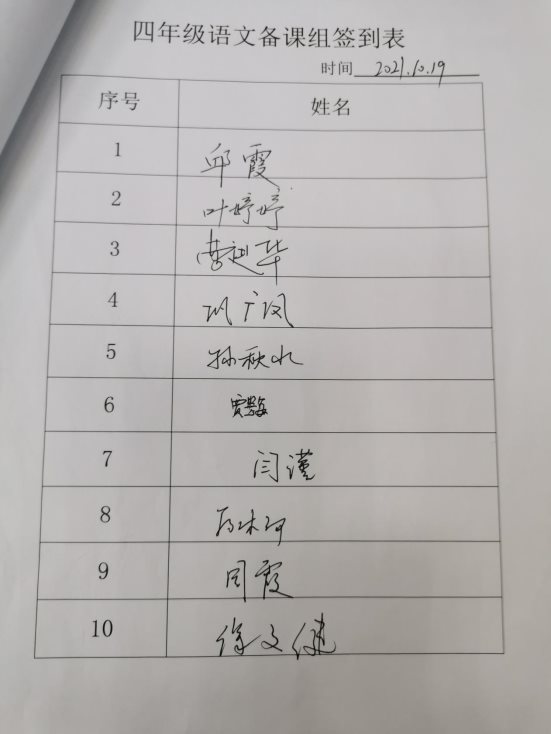 四年级语文备课组签到表
时间 2021.10.19
序号 姓名
1 邱霞
2 叶婷婷
3 曹延华
4 巩广凤
5 孙秋水
6
7 闫瑾
8
9 周霞
10 徐文健